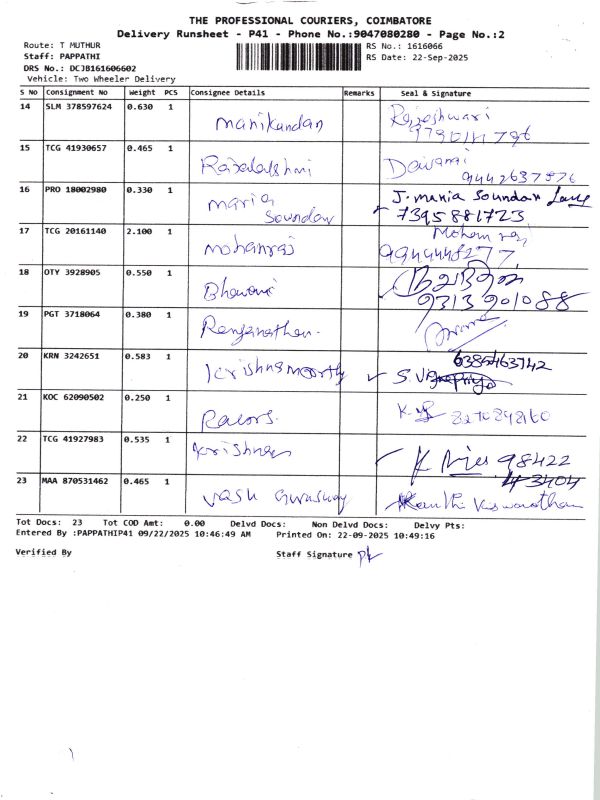 THE PROFESSIONAL COURIERS, COIMBATORE
Delivery Runsheet - P41 - Phone No.:9047080280 - Page No.:2
Route: T MUTHUR
RS No.: 1616066
Staff: PAPPATHI
RS Date: 22-Sep-2025
DRS No.: DCJB161606602
Vehicle: Two Wheeler Delivery
S No Consignment No Weight PCS Consignee Details Remarks Seal & Signature
14 SLM 378597624 0.630 1 Manikandan Rajeshwari
15 TCG 41930657 0.465 1 Rajalakshmi
16 PRO 18002980 0.330 1 maria Soundar J. maria Soundar
7395881723
17 TCG 20161140 2.100 1 mohanraj Mohan raj
9944448277
18 OTY 3928905 0.550 1 Bhavani
9313901088
19 PGT 3718064 0.380 1 Renganathan.
20 KRN 3242651 0.583 1 krishnamoorthy 6385463742
21 KOC 62090502 0.250 1 8270848160
22 TCG 41927983 0.535 1 krishnan 98422
43404
23 MAA 870531462 0.465 1 Viswanathan
Tot Docs: 23 Tot COD Amt: 0.00 Delvd Docs: Non Delvd Docs: Delvy Pts:
Entered By :PAPPATHIP41 09/22/2025 10:46:49 AM Printed On: 22-09-2025 10:49:16
Verified By Staff Signature